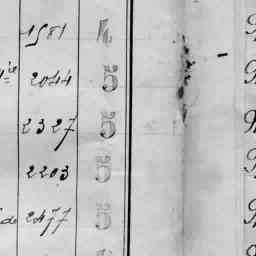 1581 4
2044 5
2327 5
2203 5
de 2477 5